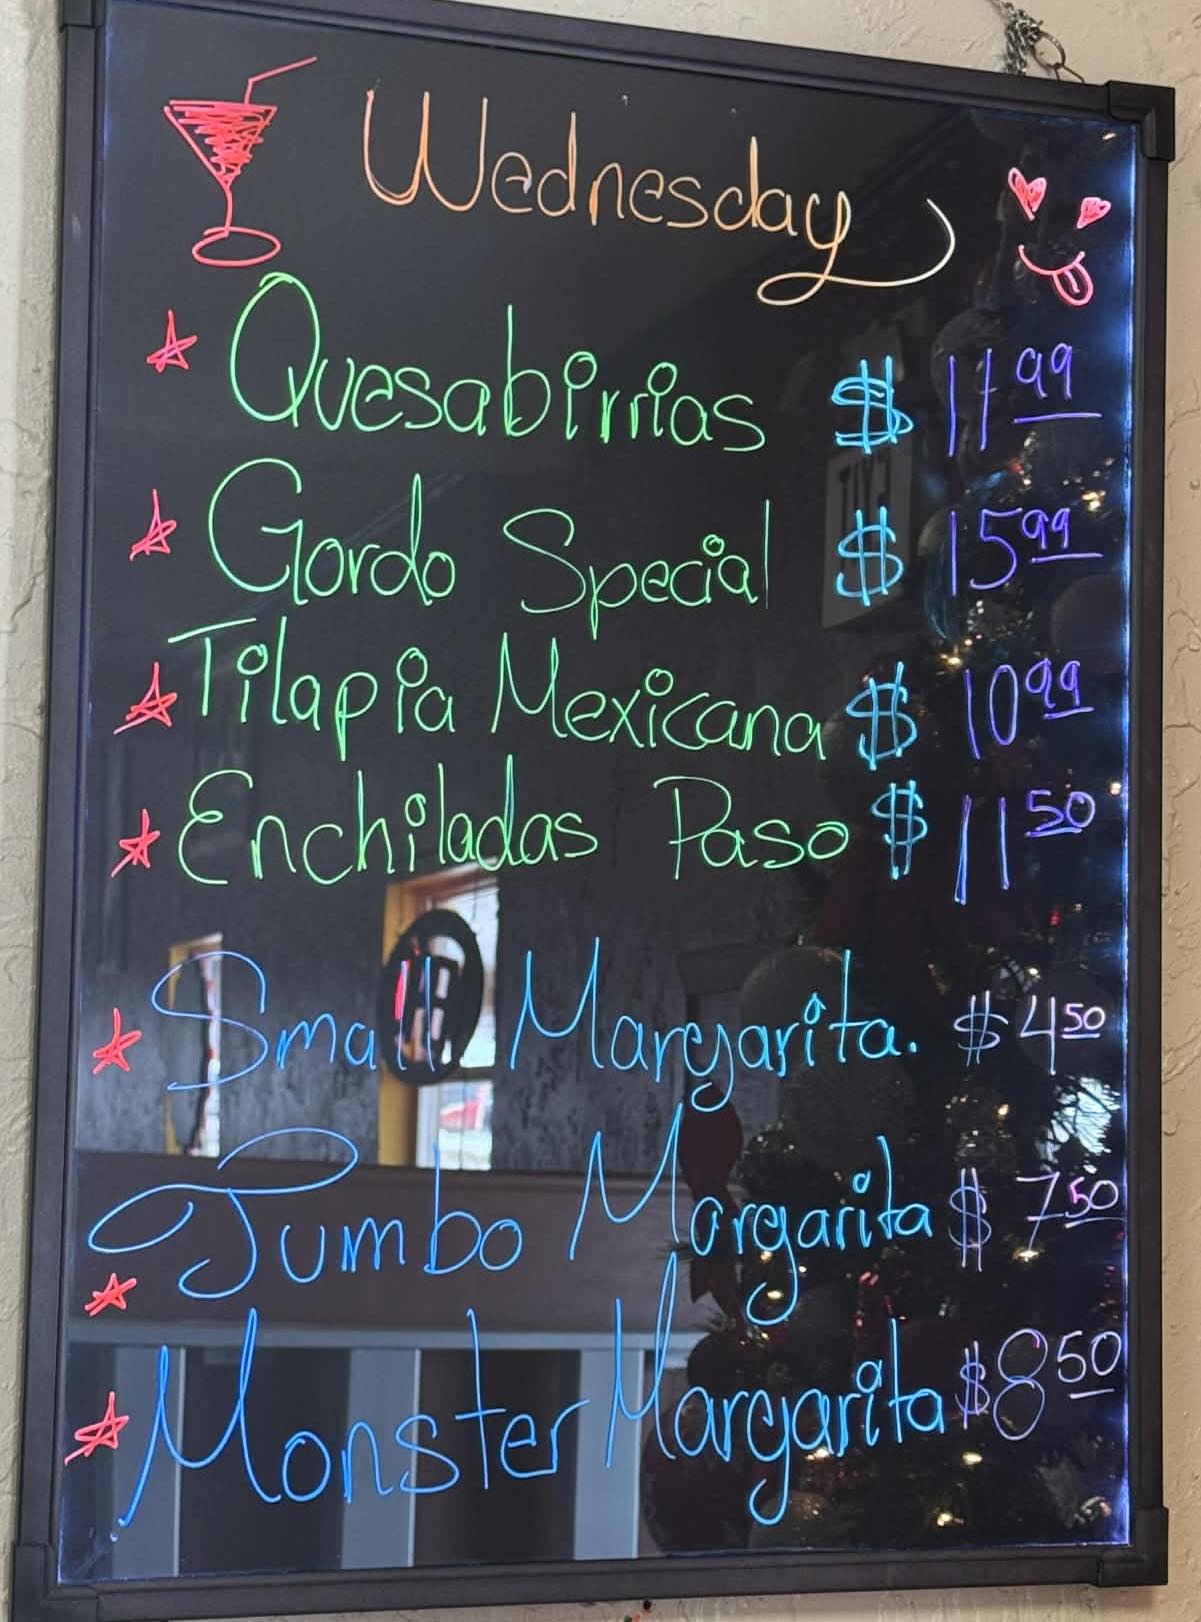 Wednesday
Quesabirrias $ 11 99
Gordo Special $ 15 99
Tilapia Mexicana $ 10 99
Enchiladas Paso $ 11 50
Small Margarita. $ 4 50
Jumbo Margarita $ 7 50
Monster Margarita $ 8 50